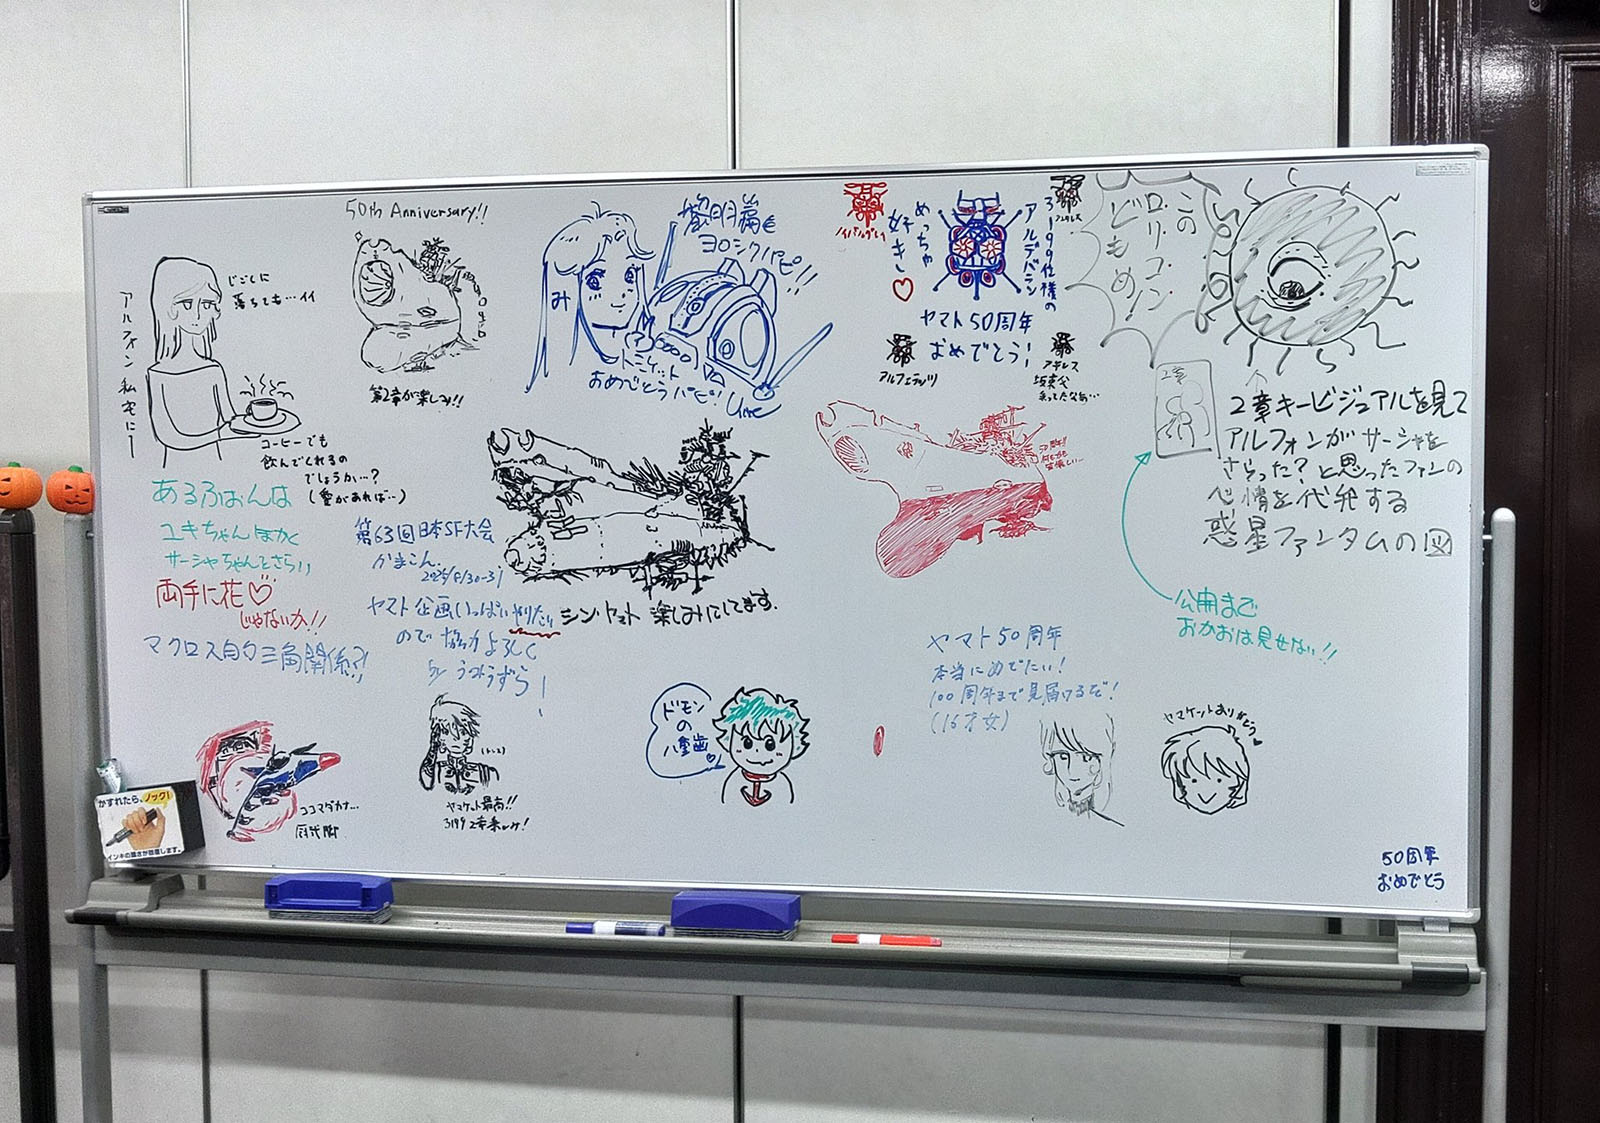 50th Anniversary!!
じごくに
落ちても…イイ
アルフォン私宅にー
コーヒーでも
飲んでくれるの
でしょうか…?
(愛があれば…)
第2章が楽しみ!!
黎明篇も
ヨロシクハピ!!
み
おめでとうハピ!
ノイバルグレイ
めっちゃ
好き!
3199仕様の
アルデバラン
ヤマト50周年
おめでとう!
このロリコン
どもめ!
2章
2章キービジュアルを見て
アルフォンがサーシャを
さらった?と思ったファンの
心情を代弁する
惑星ファンタムの図
公開まで
おかおは見せない!!
あるふぉんは
ユキちゃんほかく
サーシャちゃんもさらい
両手に花♡
じゃないか!!
マクロス的三角関係?!
第63回日本SF大会
かまこん.
2025/8/30-31
ヤマト企画いっぱいやりたい
ので協力よろしく
シン・ヤマト楽しみにしてます.
ヤマト50周年
本当にめでたい!
100周年まで見届けるぞ!
(16才女)
ドモンの
八重歯
ヤマケットありがとう
ヤマケット最高!!
ココマダカナ…
50周年
おめでとう
かすれたら、ノック!